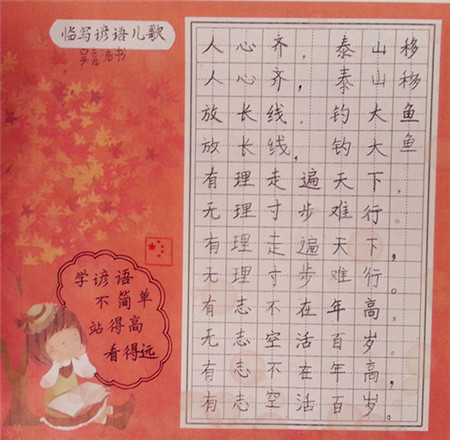 临写谚语儿歌
人心齐，泰山移
人心齐，泰山移
放长线，钓大鱼
放长线，钓大鱼
有理走遍天下，
无理寸步难行。
有理走遍天下，
无理寸步难行。
有志不在年高，
无志空活百岁。
有志不在年高，
有志空活百岁。
学谚语
不简单
站得高
看得远